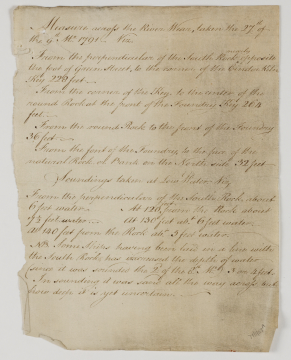 Measure across the River Wear, taken the 27th of
the 9th Mo 1791 — Viz
From the perpendicular of the South Rock, opposite
the foot of Street, to the corner of the
Key 228 feet —
From the corner of the Key to the center of the
round Rock at the front of the Foundery Key 264
feet —
From the round Rock to the front of the Foundery
36 feet —
From the front of the Foundery to the face of the
natural Rock on the North side 32 feet —
Soundings taken at Low Water Viz
From the perpendicular of the South Rock, about
6 feet water — At from the Rock about
feet water — At 130 feet abt 6 feet water
At 140 feet from the Rock abt 3 feet water
NB. Some having been laid on a line with
the South Rock, has increased the depth of water
since it was sounded the of the 8th Mo 3 or 4 feet.
In sounding it was sand all the way across, but
how deep it is yet uncertain —